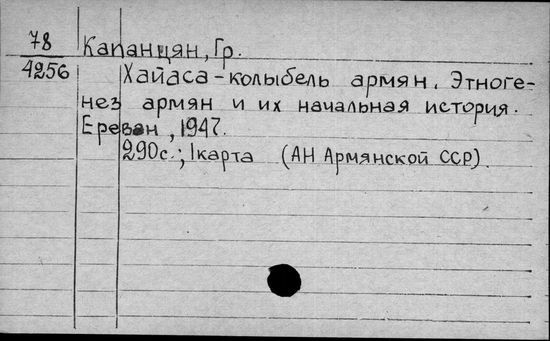 78
4256
Капанцян, Гр.
Хайаса-колыбель армян. Этноге-
нез армян и их начальная история.
Ереван, 1947.
290с.; 1карта (АН Армянской ССР).